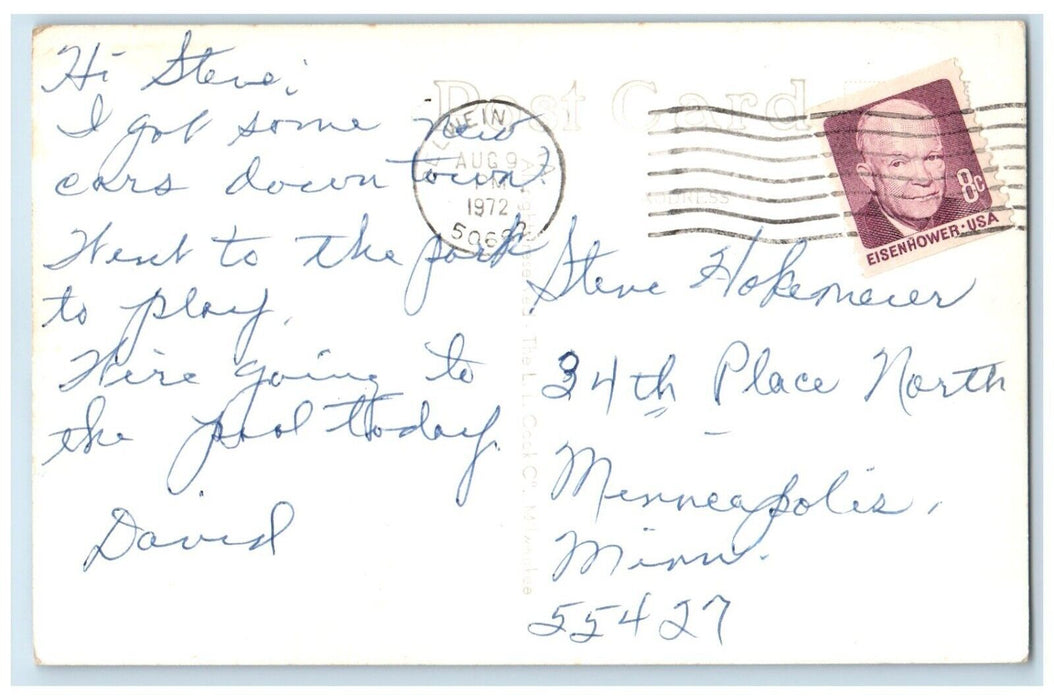 Post Card
Hi Steve,
I got some new
cars down town.
Went to the park
to play.
We're going to
the pool today.
David
OELWEIN, IA
AUG 9
PM
1972
50662
ADDRESS
EISENHOWER·USA
8c
Steve Hokemeier
34th Place North
Minneapolis,
Minn.
55427
The L. L. Cook Co. Milwaukee